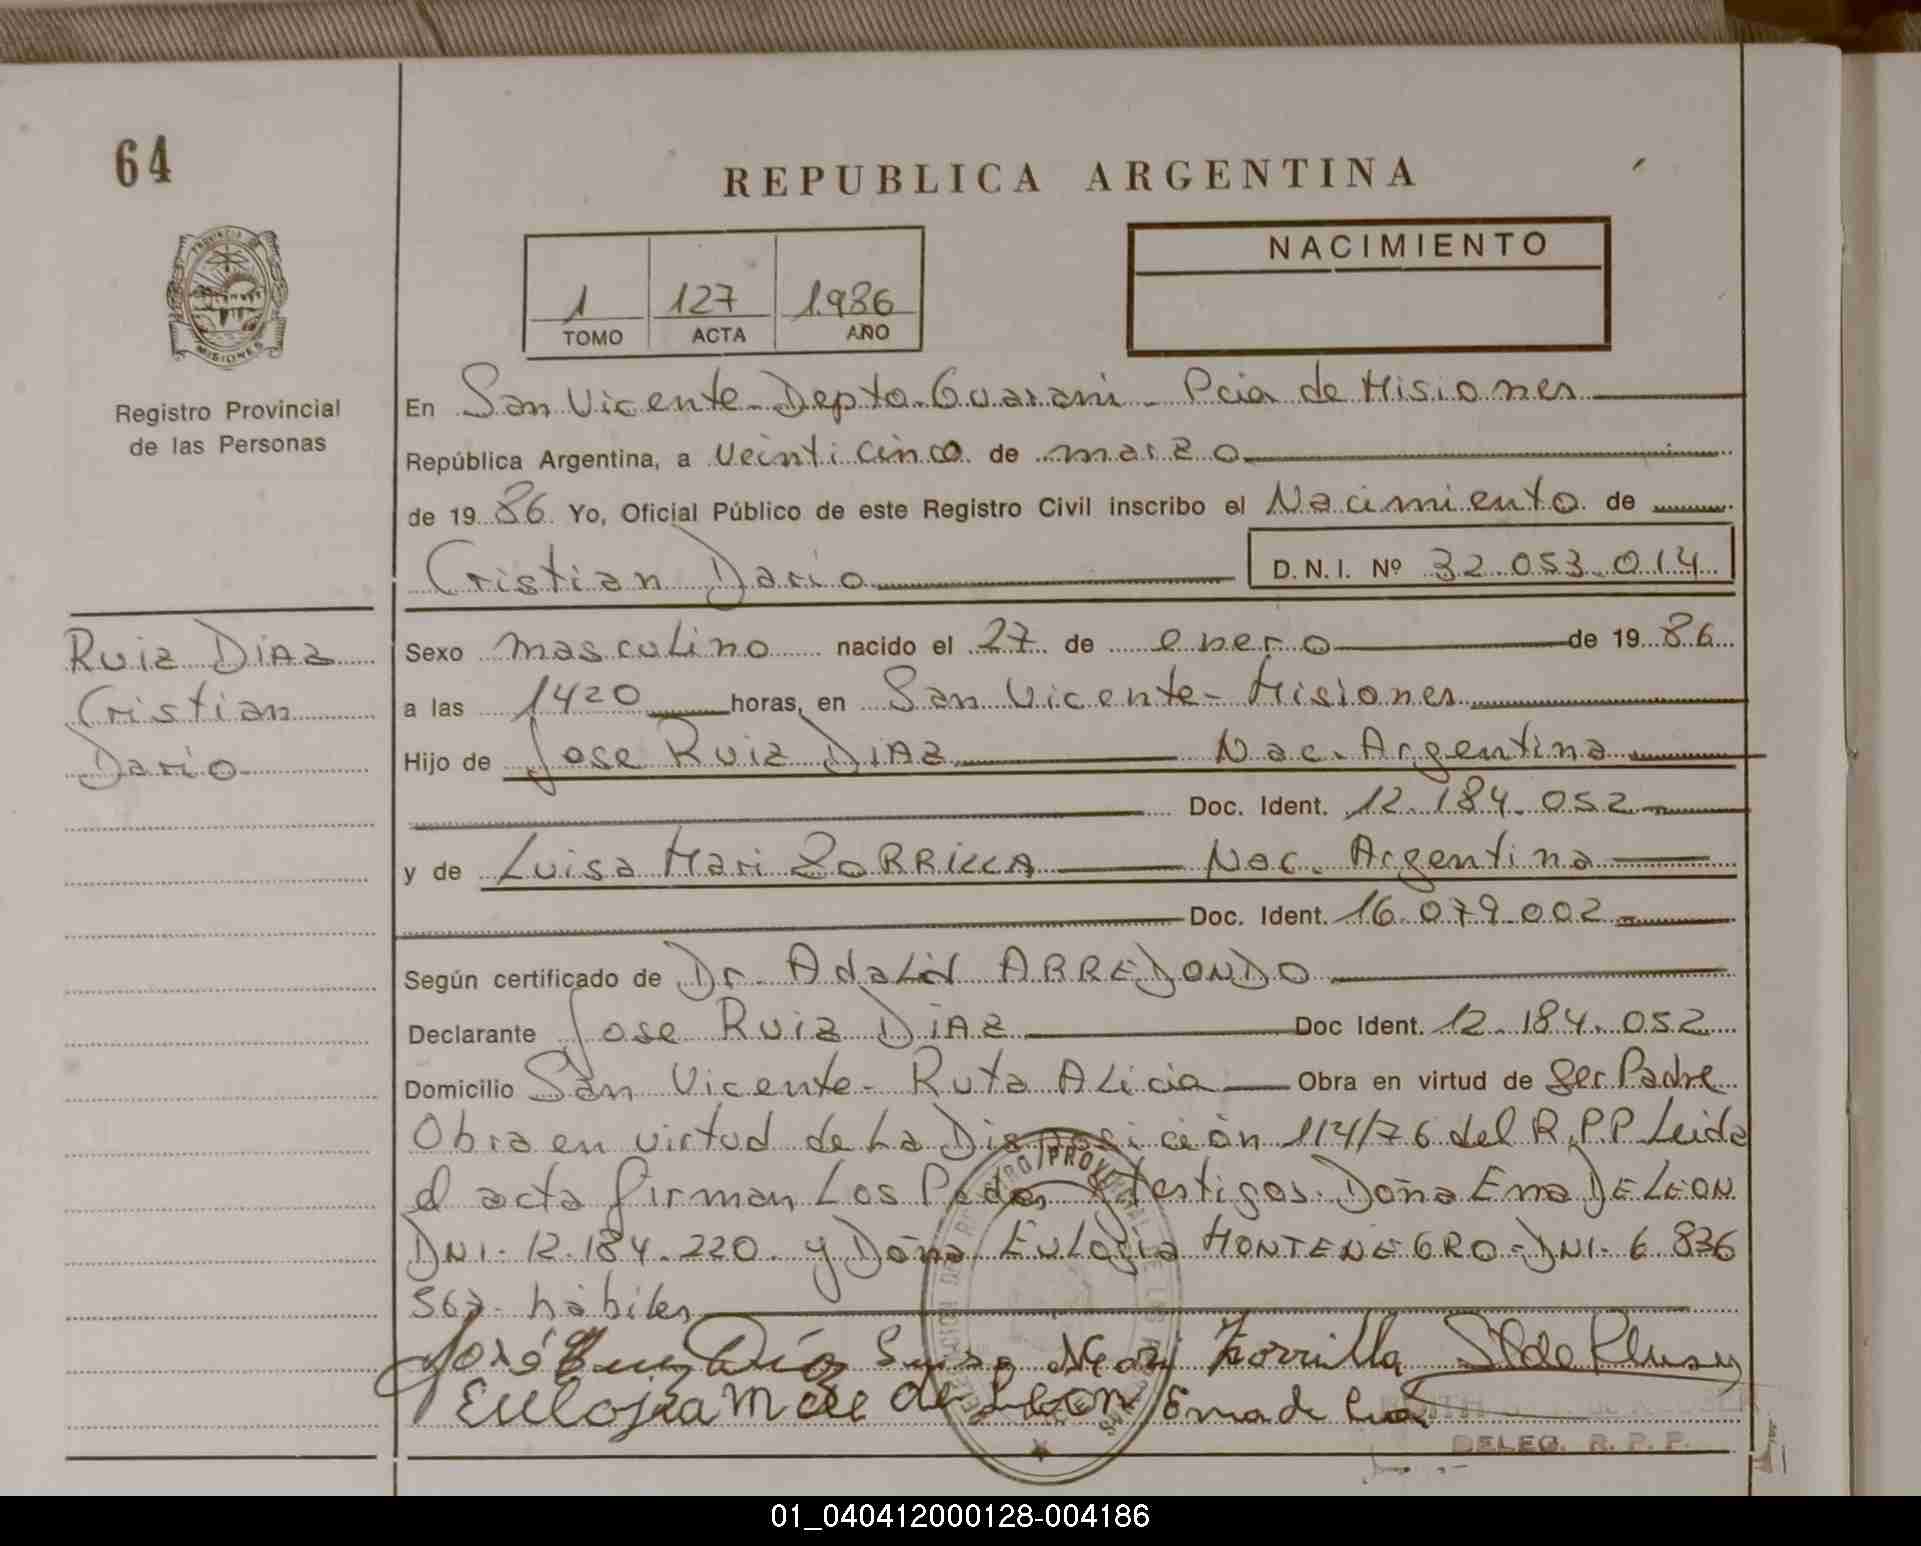 64
REPUBLICA ARGENTINA
PROVINCIA DE
MISIONES
1 127 1.986
TOMO ACTA AÑO
NACIMIENTO
Registro Provincial
de las Personas
En San Vicente - Depto. Guarani - Pcia de Misiones
República Argentina, a veinticinco de marzo
de 19 86 Yo, Oficial Público de este Registro Civil inscribo el Nacimiento de
Cristian Dario D.N.I. Nº 32.053.014
Ruiz DIAZ
Cristian
Dario
Sexo masculino nacido el 27 de enero de 19 86
a las 1420 horas, en San Vicente - Misiones
Hijo de Jose Ruiz DIAZ Nac. Argentina
Doc. Ident. 12.184.052
y de Luisa Mari ZORRILLA Nac. Argentina
Doc. Ident. 16.079.002
Según certificado de Dr. Adalid ARREDONDO
Declarante Jose Ruiz DIAZ Doc Ident. 12.184.052
Domicilio San Vicente - Ruta Alicia Obra en virtud de Ser Padre
Obra en virtud de La Disposición 114/76 del R.P.P Leida
el acta firman Los Padres y testigos. Doña Ema DE LEON
DNI. 12.184.220. y Doña Eulogia MONTENEGRO - DNI. 6.836
562 hábiles
José Ruiz Díaz Luisa Mari Zorrilla
Eulojia M de de Leon Ema de
DELEG. R. P. P.
01_040412000128-004186